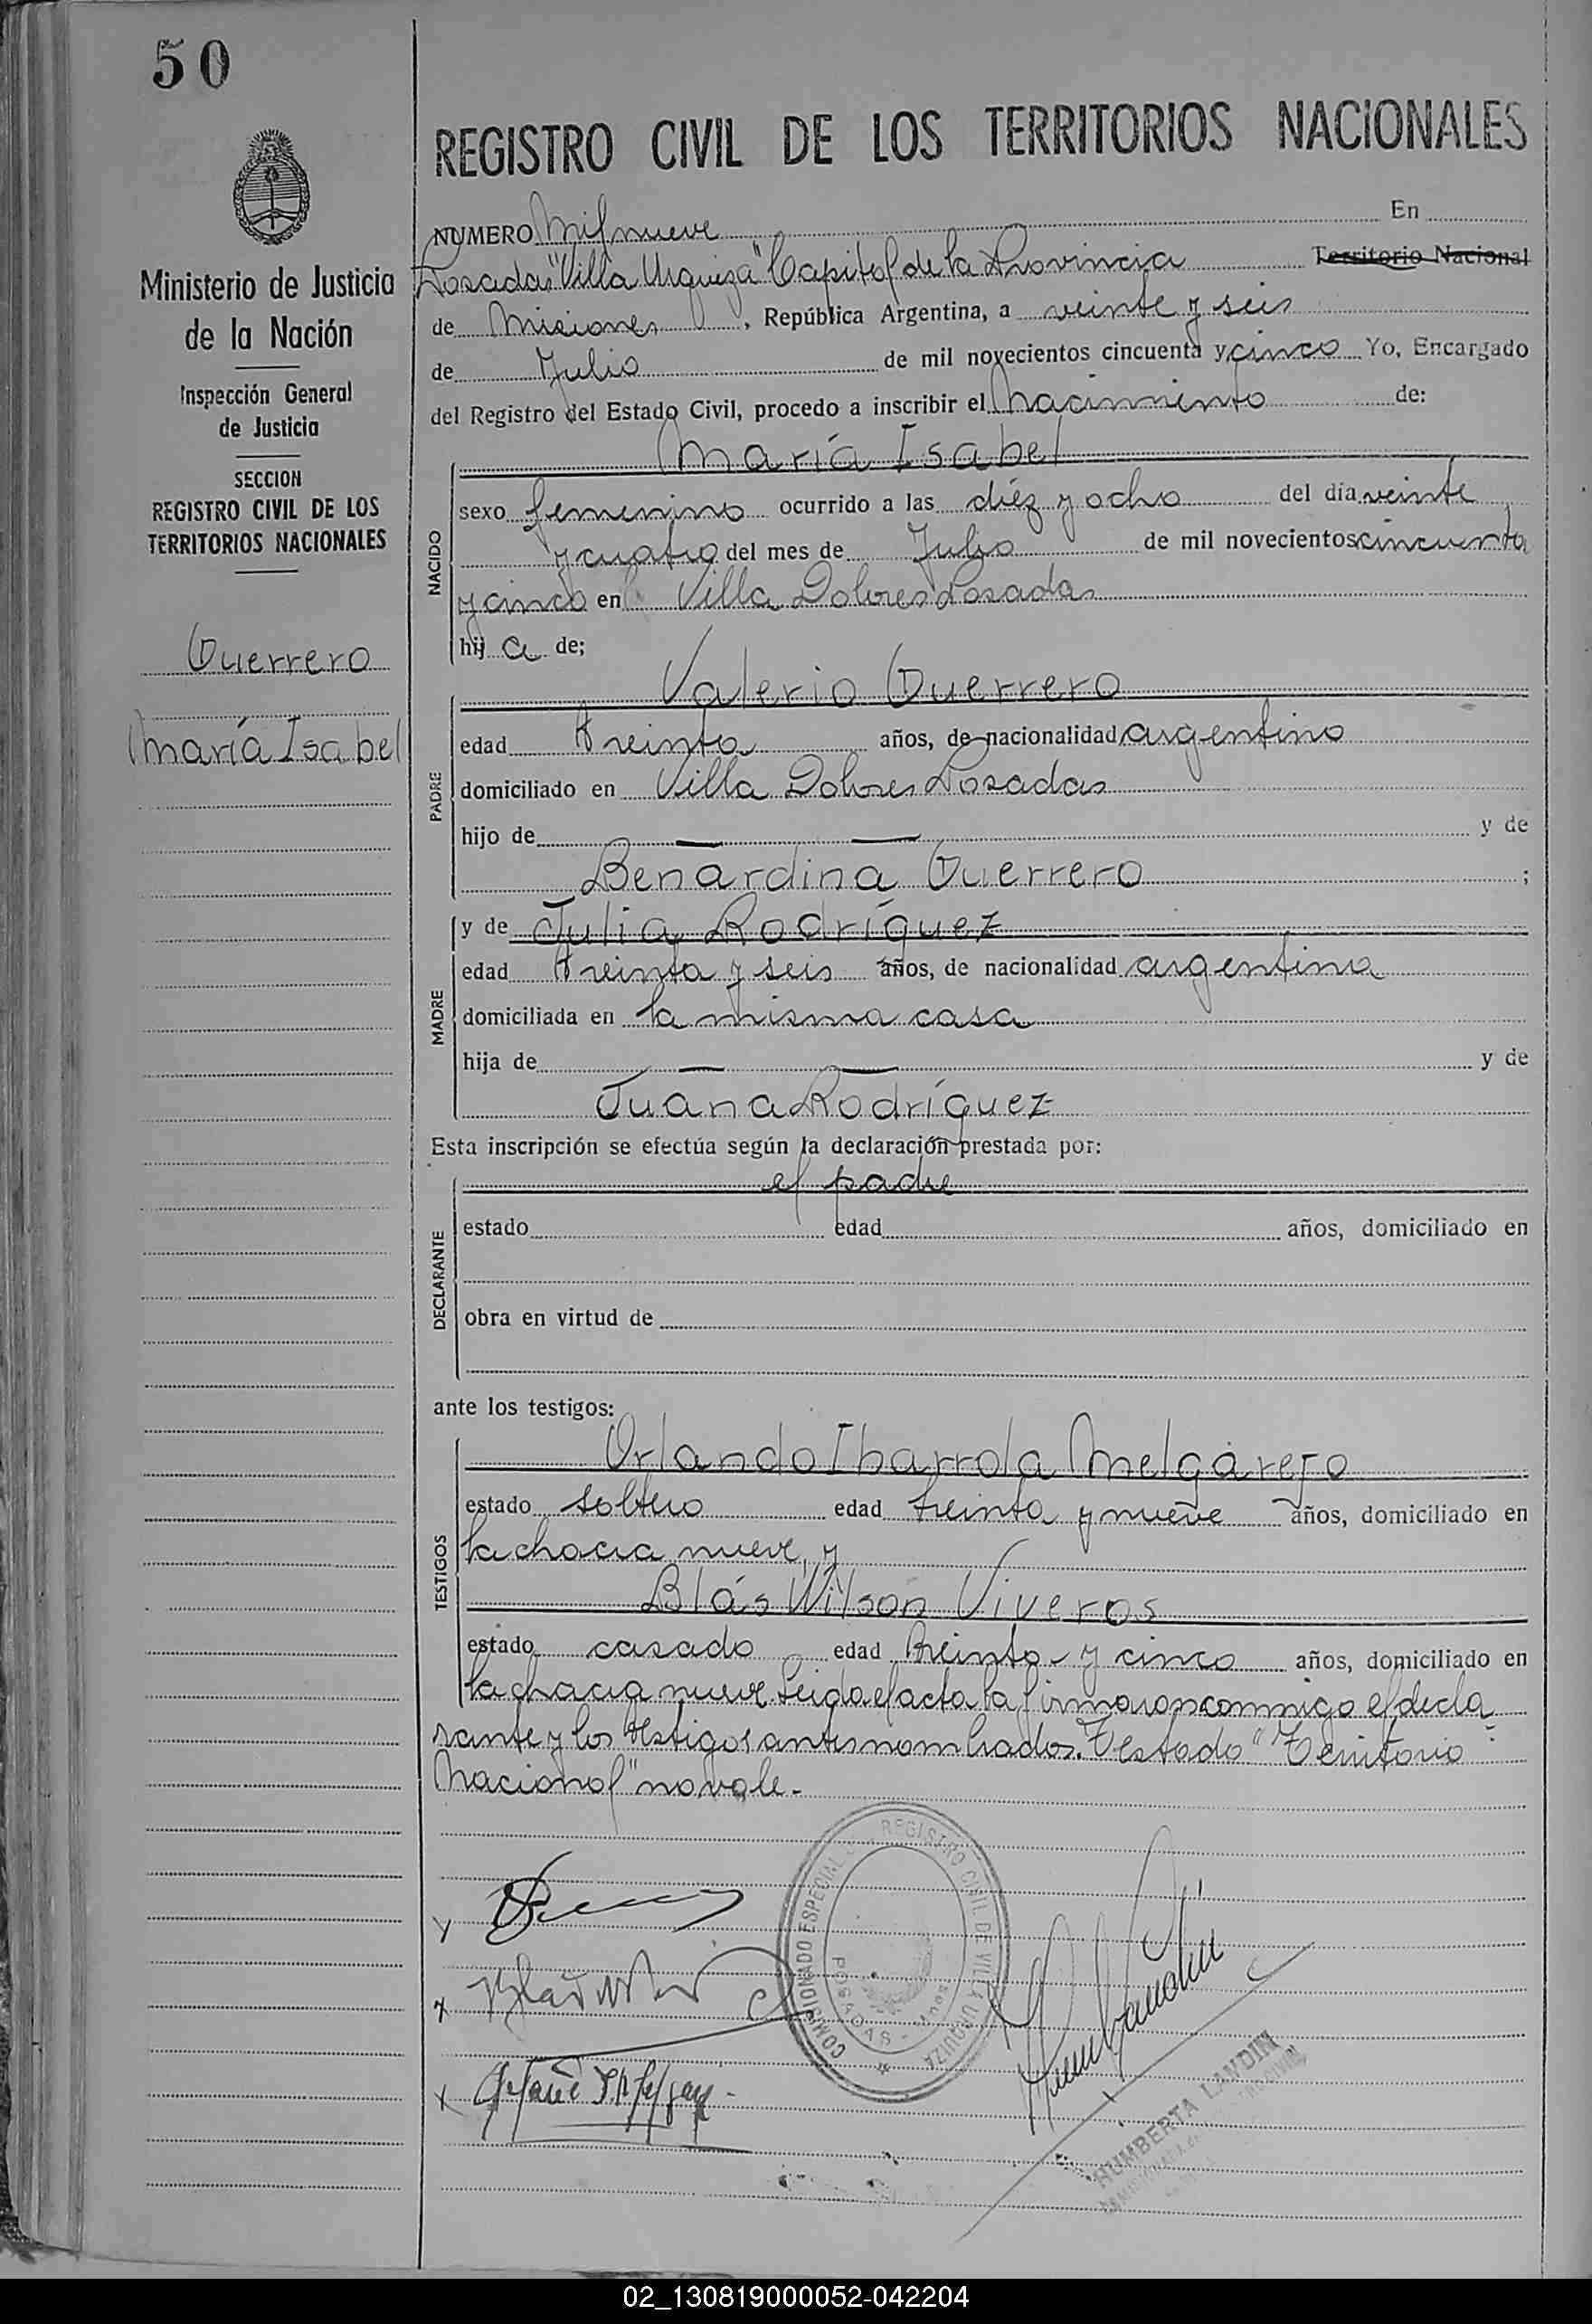 50
REGISTRO CIVIL DE LOS TERRITORIOS NACIONALES
Ministerio de Justicia
de la Nación
Inspección General
de Justicia
SECCION
REGISTRO CIVIL DE LOS
TERRITORIOS NACIONALES
Guerrero
María Isabel
NUMERO Mil nueve En
Posadas "Villa Urquiza" Capital de la Provincia Territorio Nacional
de Misiones, República Argentina, a veinte y seis
de Julio de mil novecientos cincuenta y cinco Yo, Encargado
del Registro del Estado Civil, procedo a inscribir el Nacimiento de:
NACIDO
María Isabel
sexo femenino ocurrido a las diéz y ocho del día veinte
y cuatro del mes de Julio de mil novecientos cincuenta
y cinco en Villa Dolores Posadas
hij a de;
PADRE
Valerio Guerrero
edad treinta años, de nacionalidad argentino
domiciliado en Villa Dolores Posadas
hijo de — — y de
Benardina Guerrero ;
MADRE
y de Julia Rodríguez
edad treinta y seis años, de nacionalidad argentina
domiciliada en la misma casa
hija de — — y de
Juana Rodríguez
Esta inscripción se efectúa según la declaración prestada por:
DECLARANTE
el padre
estado edad años, domiciliado en
obra en virtud de
ante los testigos:
TESTIGOS
Orlando Ibarrola Melgarejo
estado soltero edad treinta y nueve años, domiciliado en
la chacra nueve, y
Blás Wilson Viveros
estado casado edad treinta y cinco años, domiciliado en
la chacra nueve. Leida el acta la firmaron conmigo el decla
rante y los testigos antes nombrados. Testado "Territorio
Nacional" no vale.-
COMISIONADO ESPECIAL REGISTRO CIVIL DE VILLA URQUIZA
POSADAS - Mnes
HUMBERTA LANDIN
02_130819000052-042204